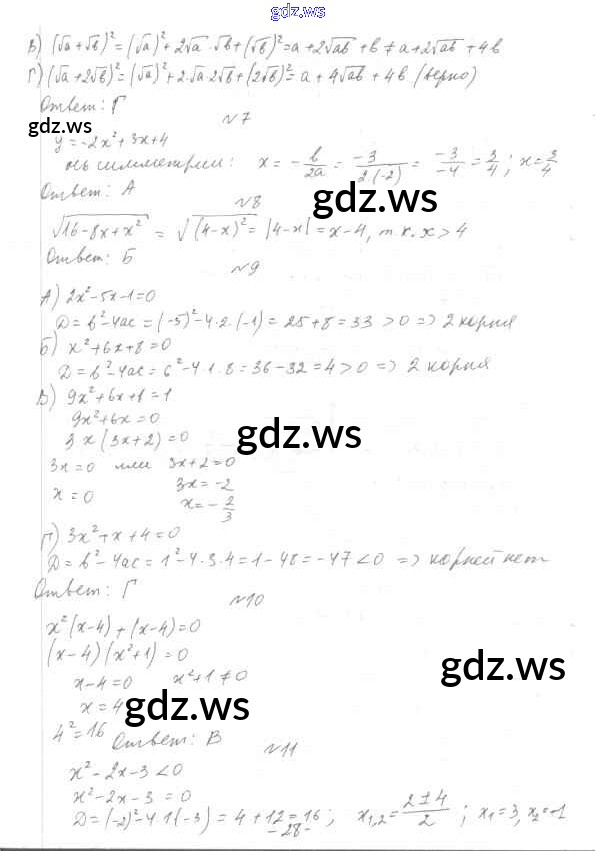 gdz.ws
В) (√a + √b)² = (√a)² + 2√a · √b + (√b)² = a + 2√ab + b ≠ a + 2√ab + 4b
Г) (√a + 2√b)² = (√a)² + 2·√a·2√b + (2√b)² = a + 4√ab + 4b (верно)
Ответ: Г
gdz.ws
№7
y = -2x² + 3x + 4
ось симметрии: x = -b/2a = -3/2·(-2) = -3/-4 = 3/4; x = 3/4
Ответ: А
gdz.ws
№8
√16 - 8x + x² = √(4-x)² = |4-x| = x-4, т.к. x > 4
Ответ: Б
№9
А) 2x² - 5x - 1 = 0
D = b² - 4ac = (-5)² - 4·2·(-1) = 25 + 8 = 33 > 0 => 2 корня
Б) x² + 6x + 8 = 0
D = b² - 4ac = 6² - 4·1·8 = 36 - 32 = 4 > 0 => 2 корня
В) 9x² + 6x + 1 = 1
9x² + 6x = 0
3x(3x+2) = 0
gdz.ws
3x = 0 или 3x + 2 = 0
x = 0 3x = -2
x = -2/3
Г) 3x² + x + 4 = 0
D = b² - 4ac = 1² - 4·3·4 = 1 - 48 = -47 < 0 => корней нет
Ответ: Г
№10
x²(x-4) + (x-4) = 0
(x-4)(x²+1) = 0
gdz.ws
x-4 = 0 x²+1 ≠ 0
x = 4
gdz.ws
4² = 16 Ответ: В
№11
x² - 2x - 3 < 0
x² - 2x - 3 = 0
D = (-2)² - 4·1·(-3) = 4 + 12 = 16; x₁,₂ = 2±4/2; x₁ = 3, x₂ = -1
gdz.ws
- 28 -